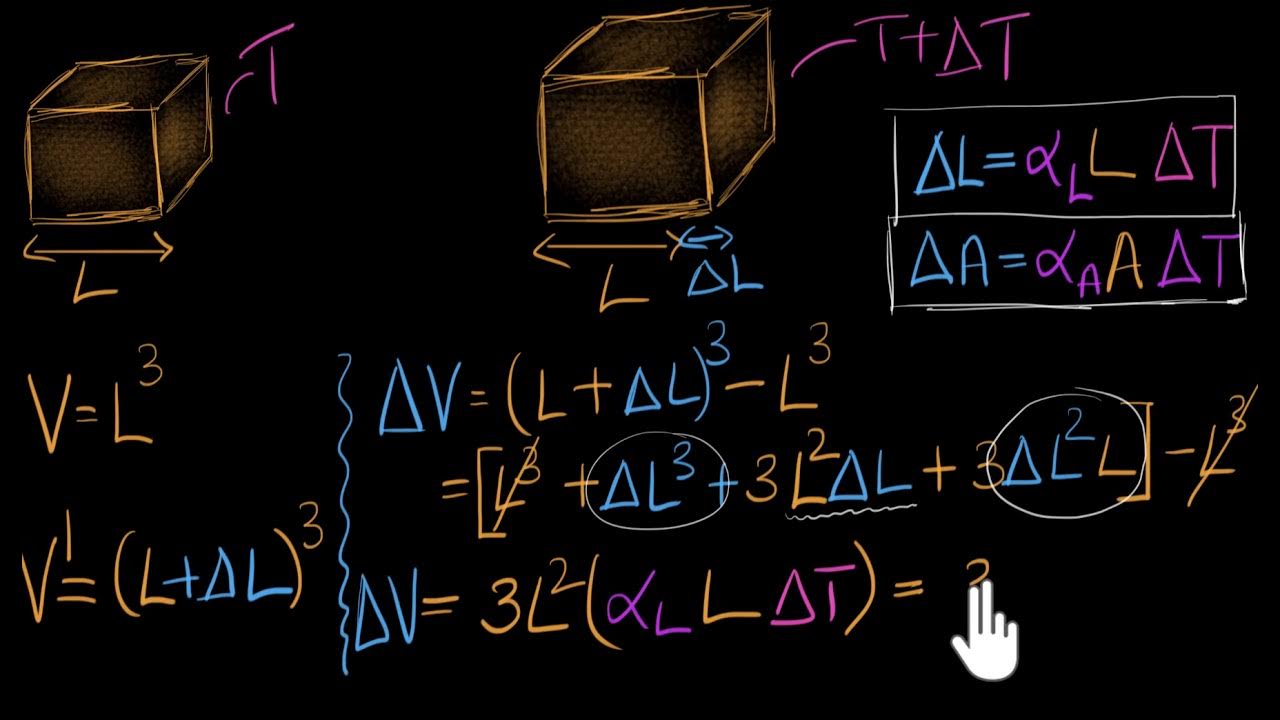 T
T+ΔT
L
L ΔL
ΔL=α_L L ΔT
ΔA=α_A A ΔT
V=L³
V'=(L+ΔL)³
ΔV=(L+ΔL)³-L³
=[L³+ΔL³+3L²ΔL+3ΔL²L]-L³
ΔV=3L²(α_L L ΔT)=